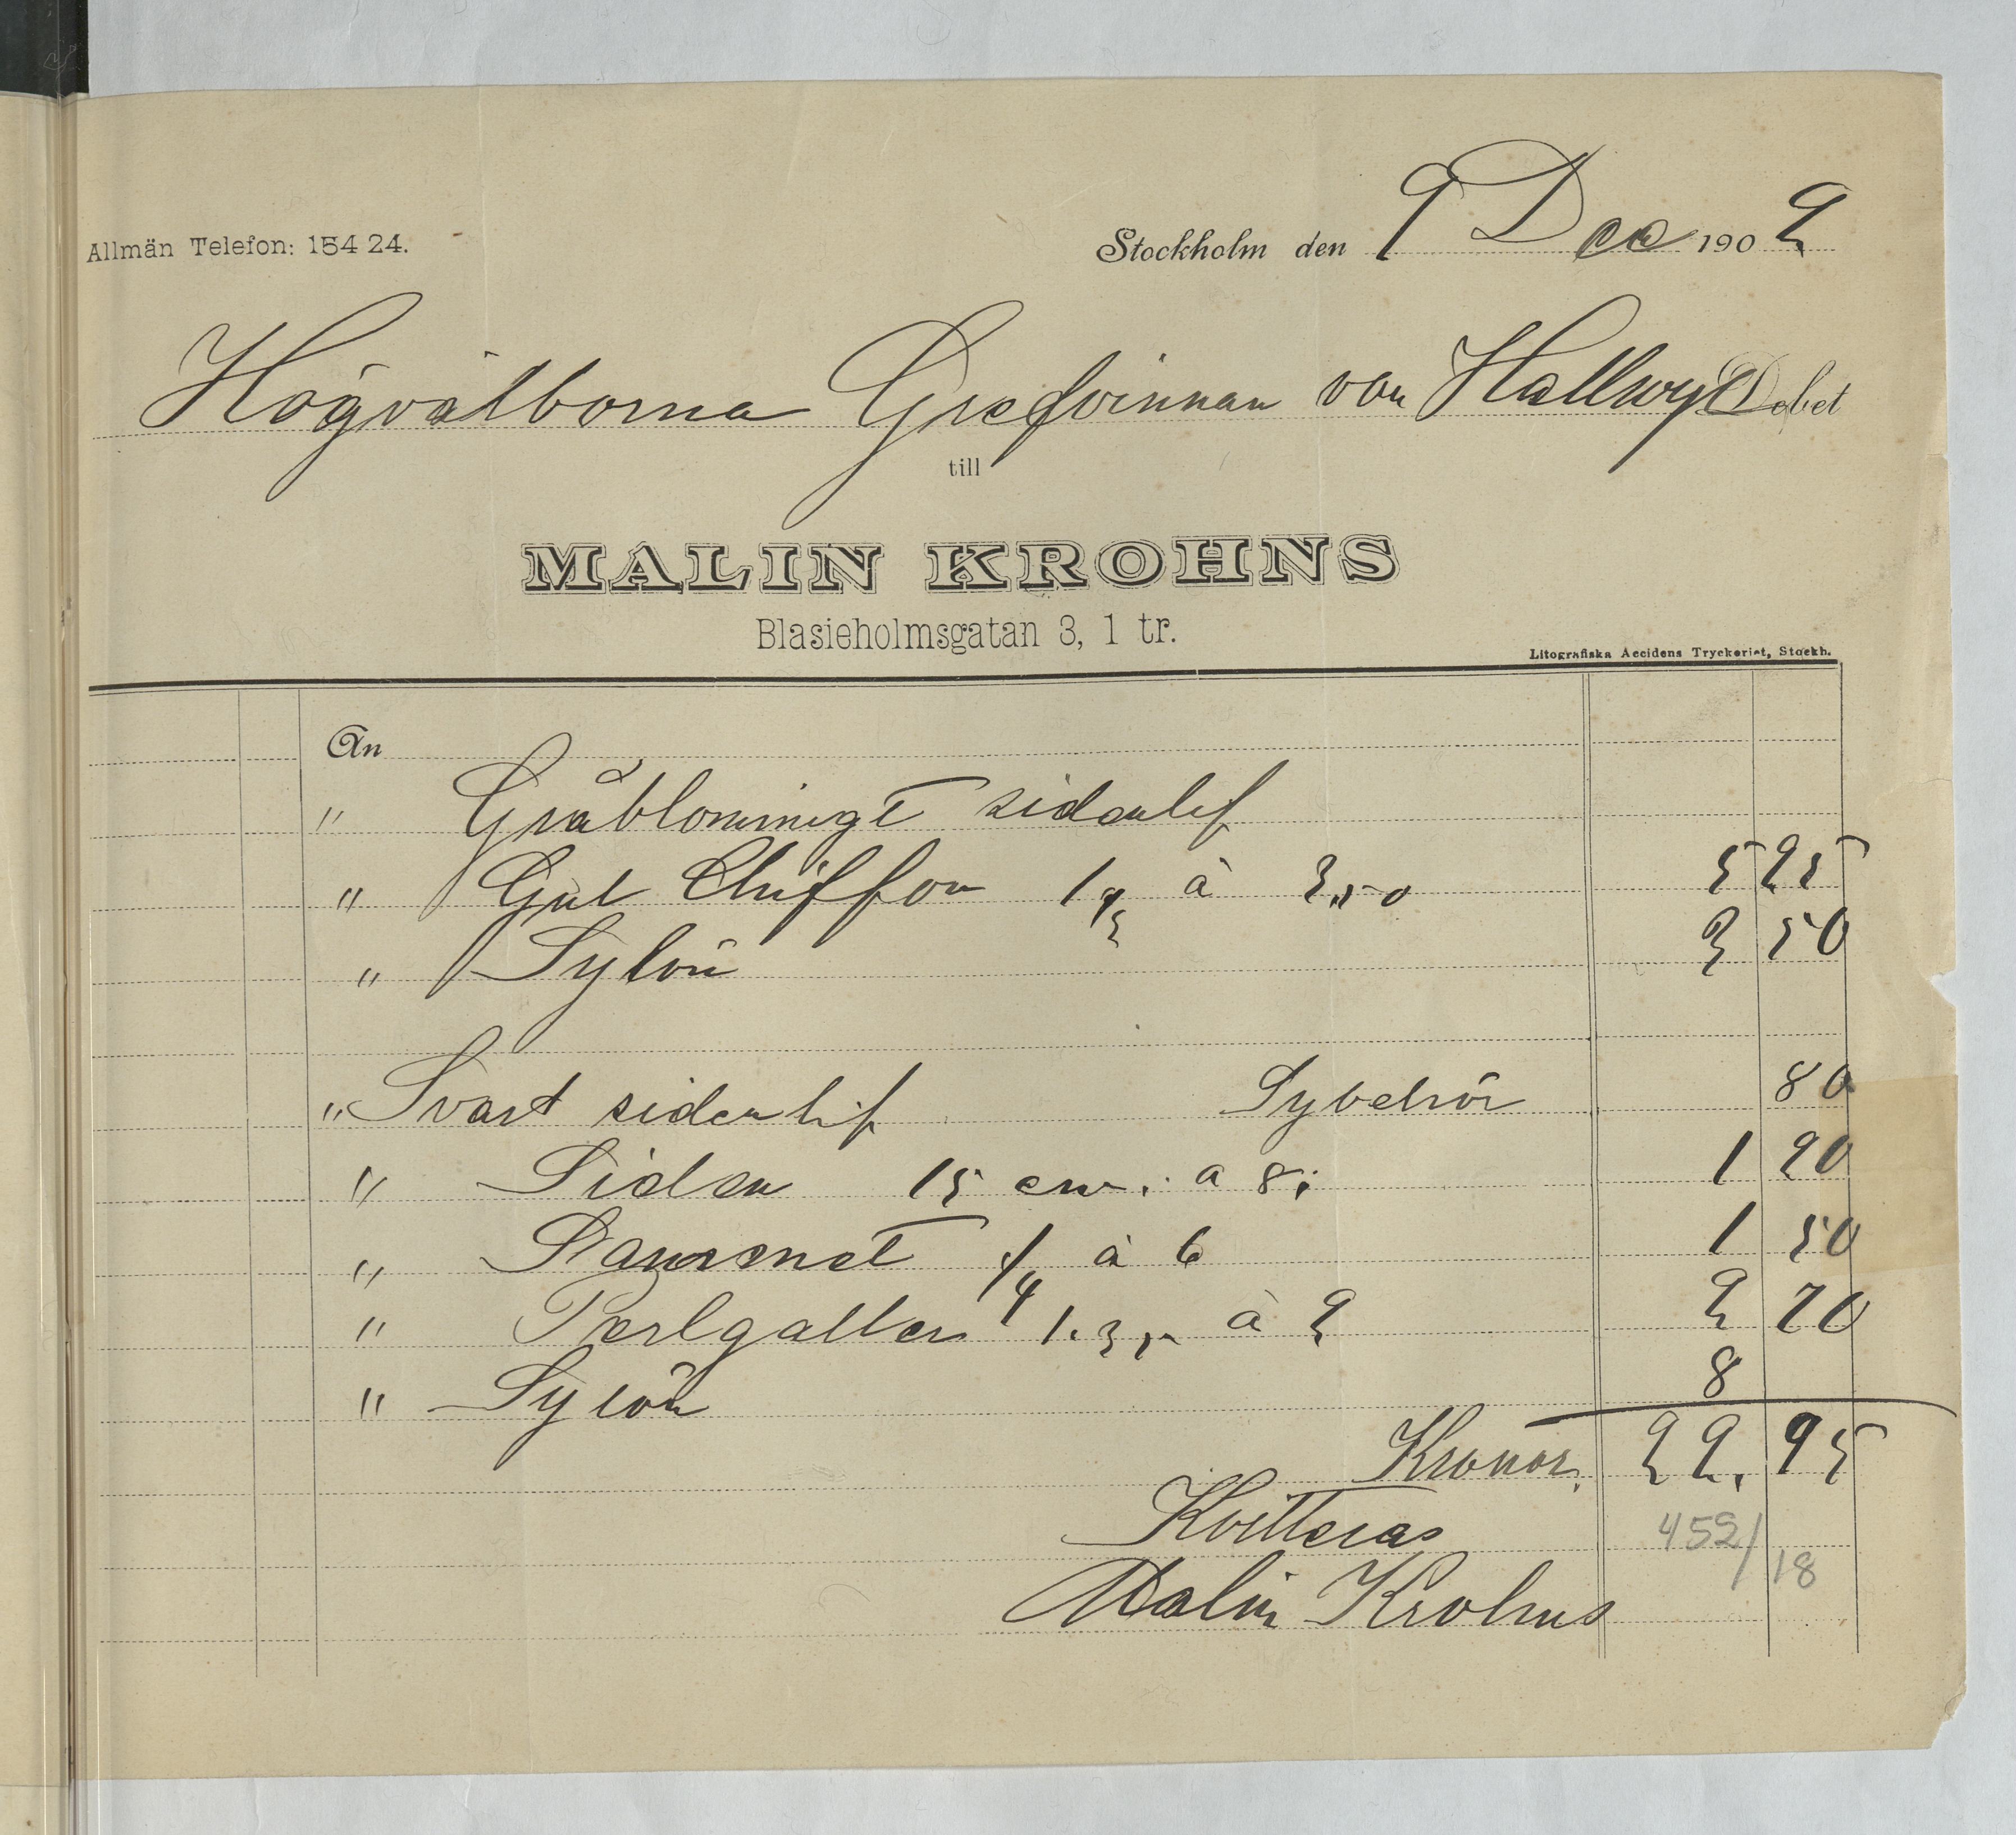 Allmän Telefon: 154 24.
Stockholm den 9 Dec 1902
Högvälborna Grefvinnan von Hallwyl Debet
till
MALIN KROHNS
Blasieholmsgatan 3, 1 tr.
Litografiska Accidens Tryckeriet, Stockh.
An
" Gråblommigt sidenlif
" Gul Chiffon 1 1/2 à 3,50 5 25
" Sylön 3 50
" Svart sidenlif Sybehör 80
" Siden 15 cm. à 8. 1 20
" Sammet 1/4 à 6 1 50
" Perlgaller 1.35 à 2 2 70
" Sylön 8
Kronor. 22. 95
Kvitteras 452/18
Malin Krohns